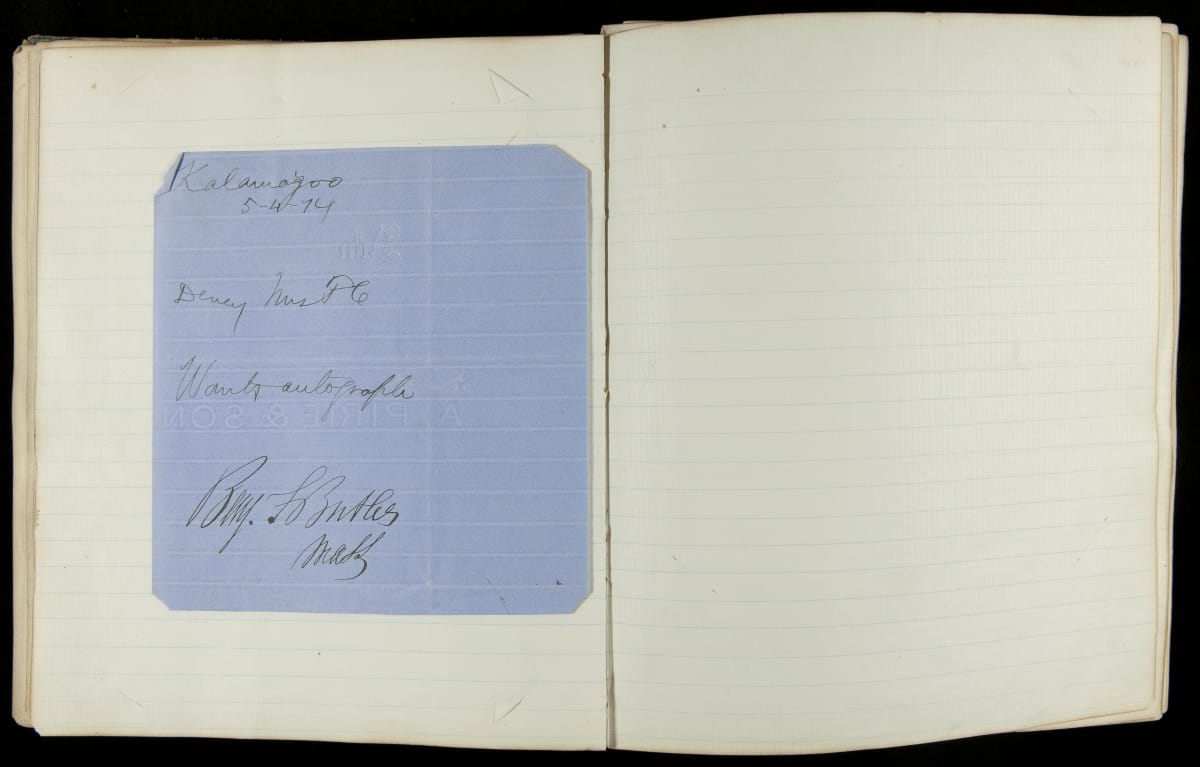 Kalamazoo
5-4-74
Dewey Mrs F C
Wants autograph
A. PIRIE & SON
Benj. F Butler
Mass